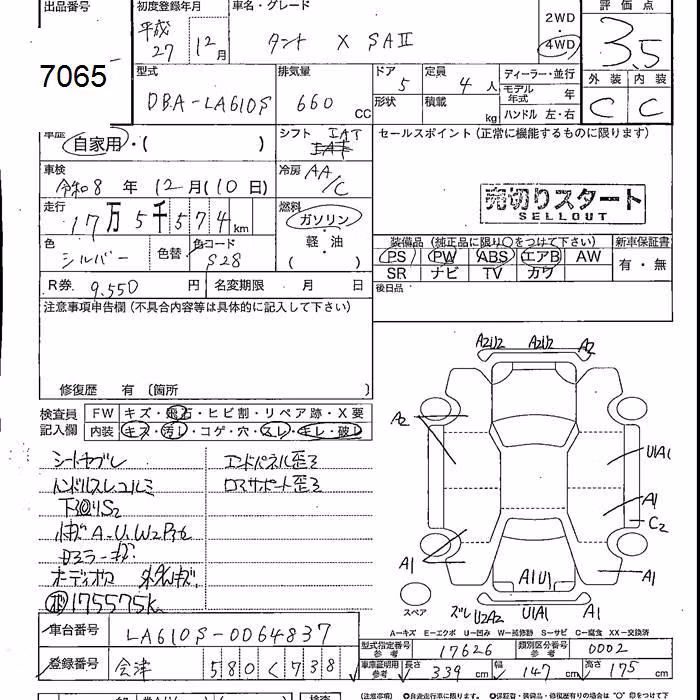 出品番号
7065
初度登録年月
平成
27 12月
車名・グレード
タント X SAⅡ
2WD
・
4WD
評価点
3.5
外装 内装
C C
型式
DBA-LA610S
排気量
660 cc
ドア 5
形状
定員 4 人
積載 kg
ディーラー・並行
モデル年式 年
ハンドル 左・右
車歴
自家用・( )
シフト IAT
冷房 AA/C
車検
令和8年 12月(10日)
走行
17万5千574km
燃料
ガソリン
・
軽・油
( )
色
シルバー
色替
色コード
S28
R券 9,550 円
名変期限 月 日
セールスポイント(正常に機能するものに限ります)
売切りスタート
SELLOUT
装備品(純正品に限り○をつけて下さい)
新車保証書
PS PW ABS エアB AW
SR ナビ TV カワ
有・無
後日品
注意事項申告欄(不具合内容等は具体的に記入して下さい)
修復歴 有〔箇所 〕
検査員
記入欄
FW キズ・飛石・ヒビ割・リペア跡・X要
内装 キズ・汚レ・コゲ・穴・スレ・キレ・破レ
シートヤブレ
ハンドルスレユルミ
下回りS2
オーディオ
175575k
エンドパネル歪ミ
ロアサポート歪ミ
A2U2 A2U2 A2
A2
U1A1
A1
C2
A1
A1U1
A1
スペア
ズレ U2A2 U1A1 A1
A-キズ E-エクボ U-凹み W-補修跡 S-サビ C-腐食 XX-交換済
車台番号 LA610S-0064837
登録番号 会津 580く738
型式指定番号 参考 17626
類別区分番号 参考 0002
車庫証明用 参考 長さ 339 cm 幅 147 cm 高さ 175 cm